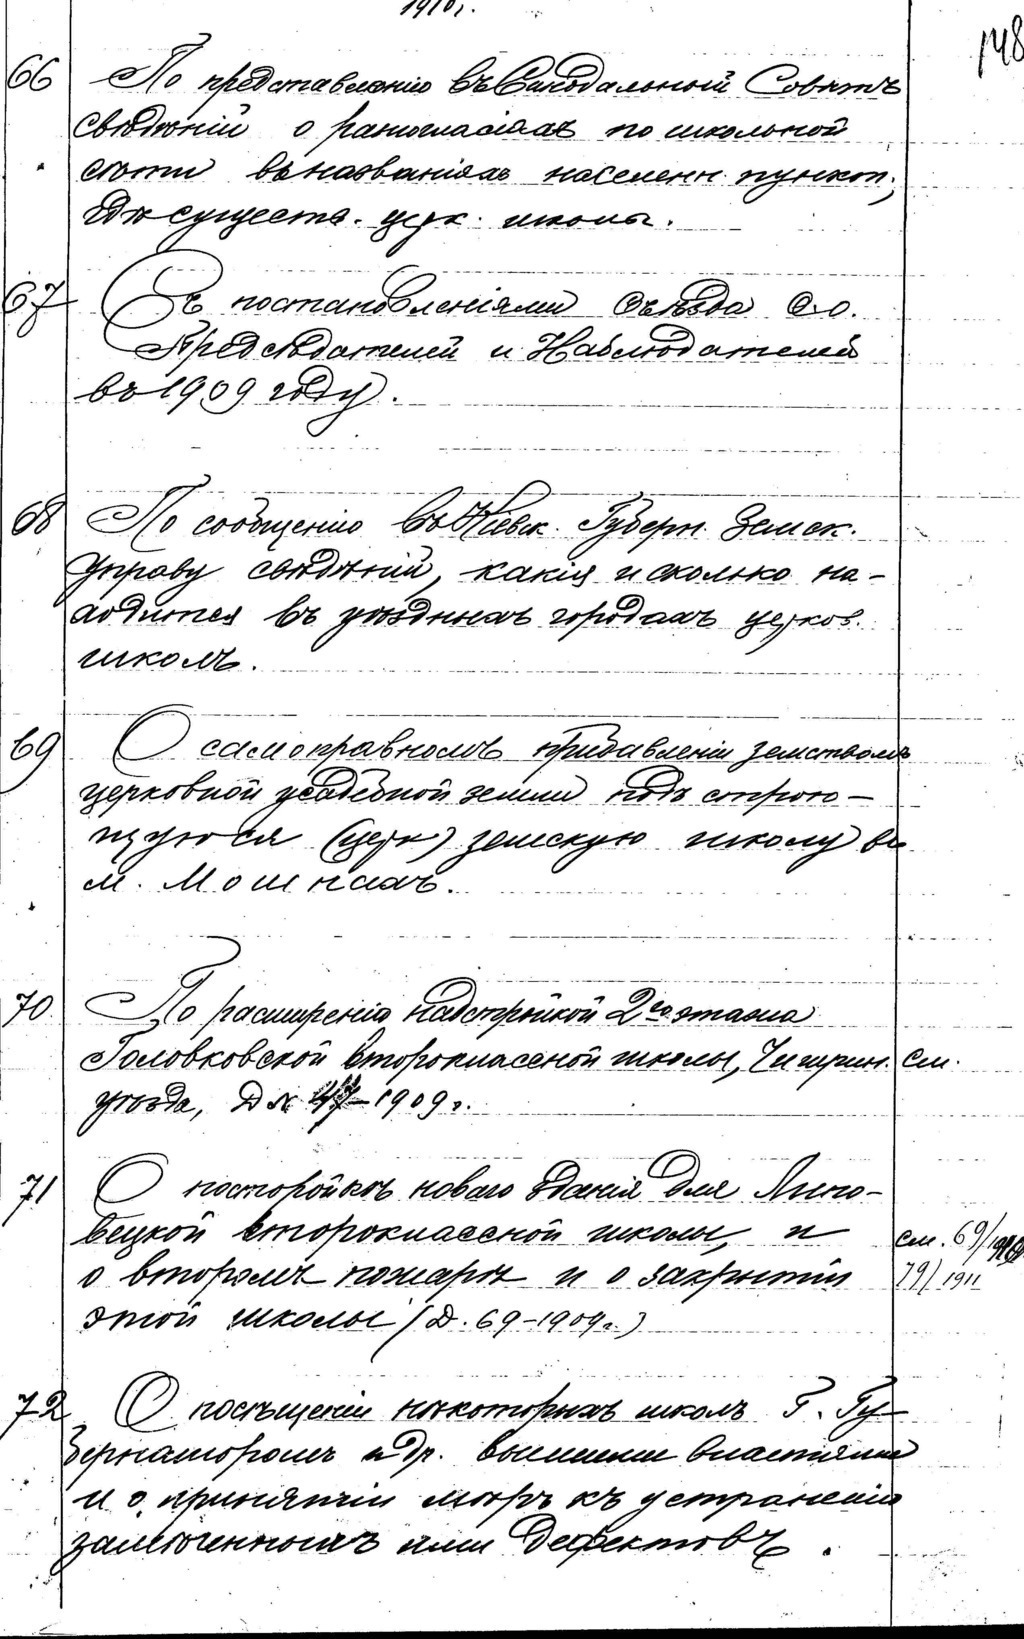 1910 г.
148
66 По представленію въ Синодальный Совѣтъ
свѣдѣній о разногласіяхъ по школьной
сѣти въ названіяхъ населенн. пунктп.,
гдѣ существ. церк. школы.
67 Съ постановленіями Съѣзда О.о.
Предсѣдателей и Наблюдателей
въ 1909 году.
68 По сообщенію въ Кіевск. Губерн. Земск.
Управу свѣдѣній, какія и сколько на-
ходится въ уѣздныхъ городахъ церков.
школъ.
69 О самоправномъ придавленіи земствомъ
церковной усадебной земли подъ строю-
щуюся (церк) земскую школу въ
м. Мошнахъ.
70 По расширенію надстройкой 2го этажа
Головковской второклассной школы, Чигрин. см.
уѣзда, Д № 47-1909 г.
71 О постройкѣ новаго зданія для Липо-
вецкой второклассной школы, и см. 69/1909
о второмъ пожарѣ и о закрытіи 79/1911
этой школы (Д. 69-1909 г.)
72 О посѣщеніи нѣкоторыхъ школъ Г. Гу-
бернаторомъ и др. высшими властями
и о принятіи мѣръ къ устраненію
замѣченныхъ ими дефектовъ.